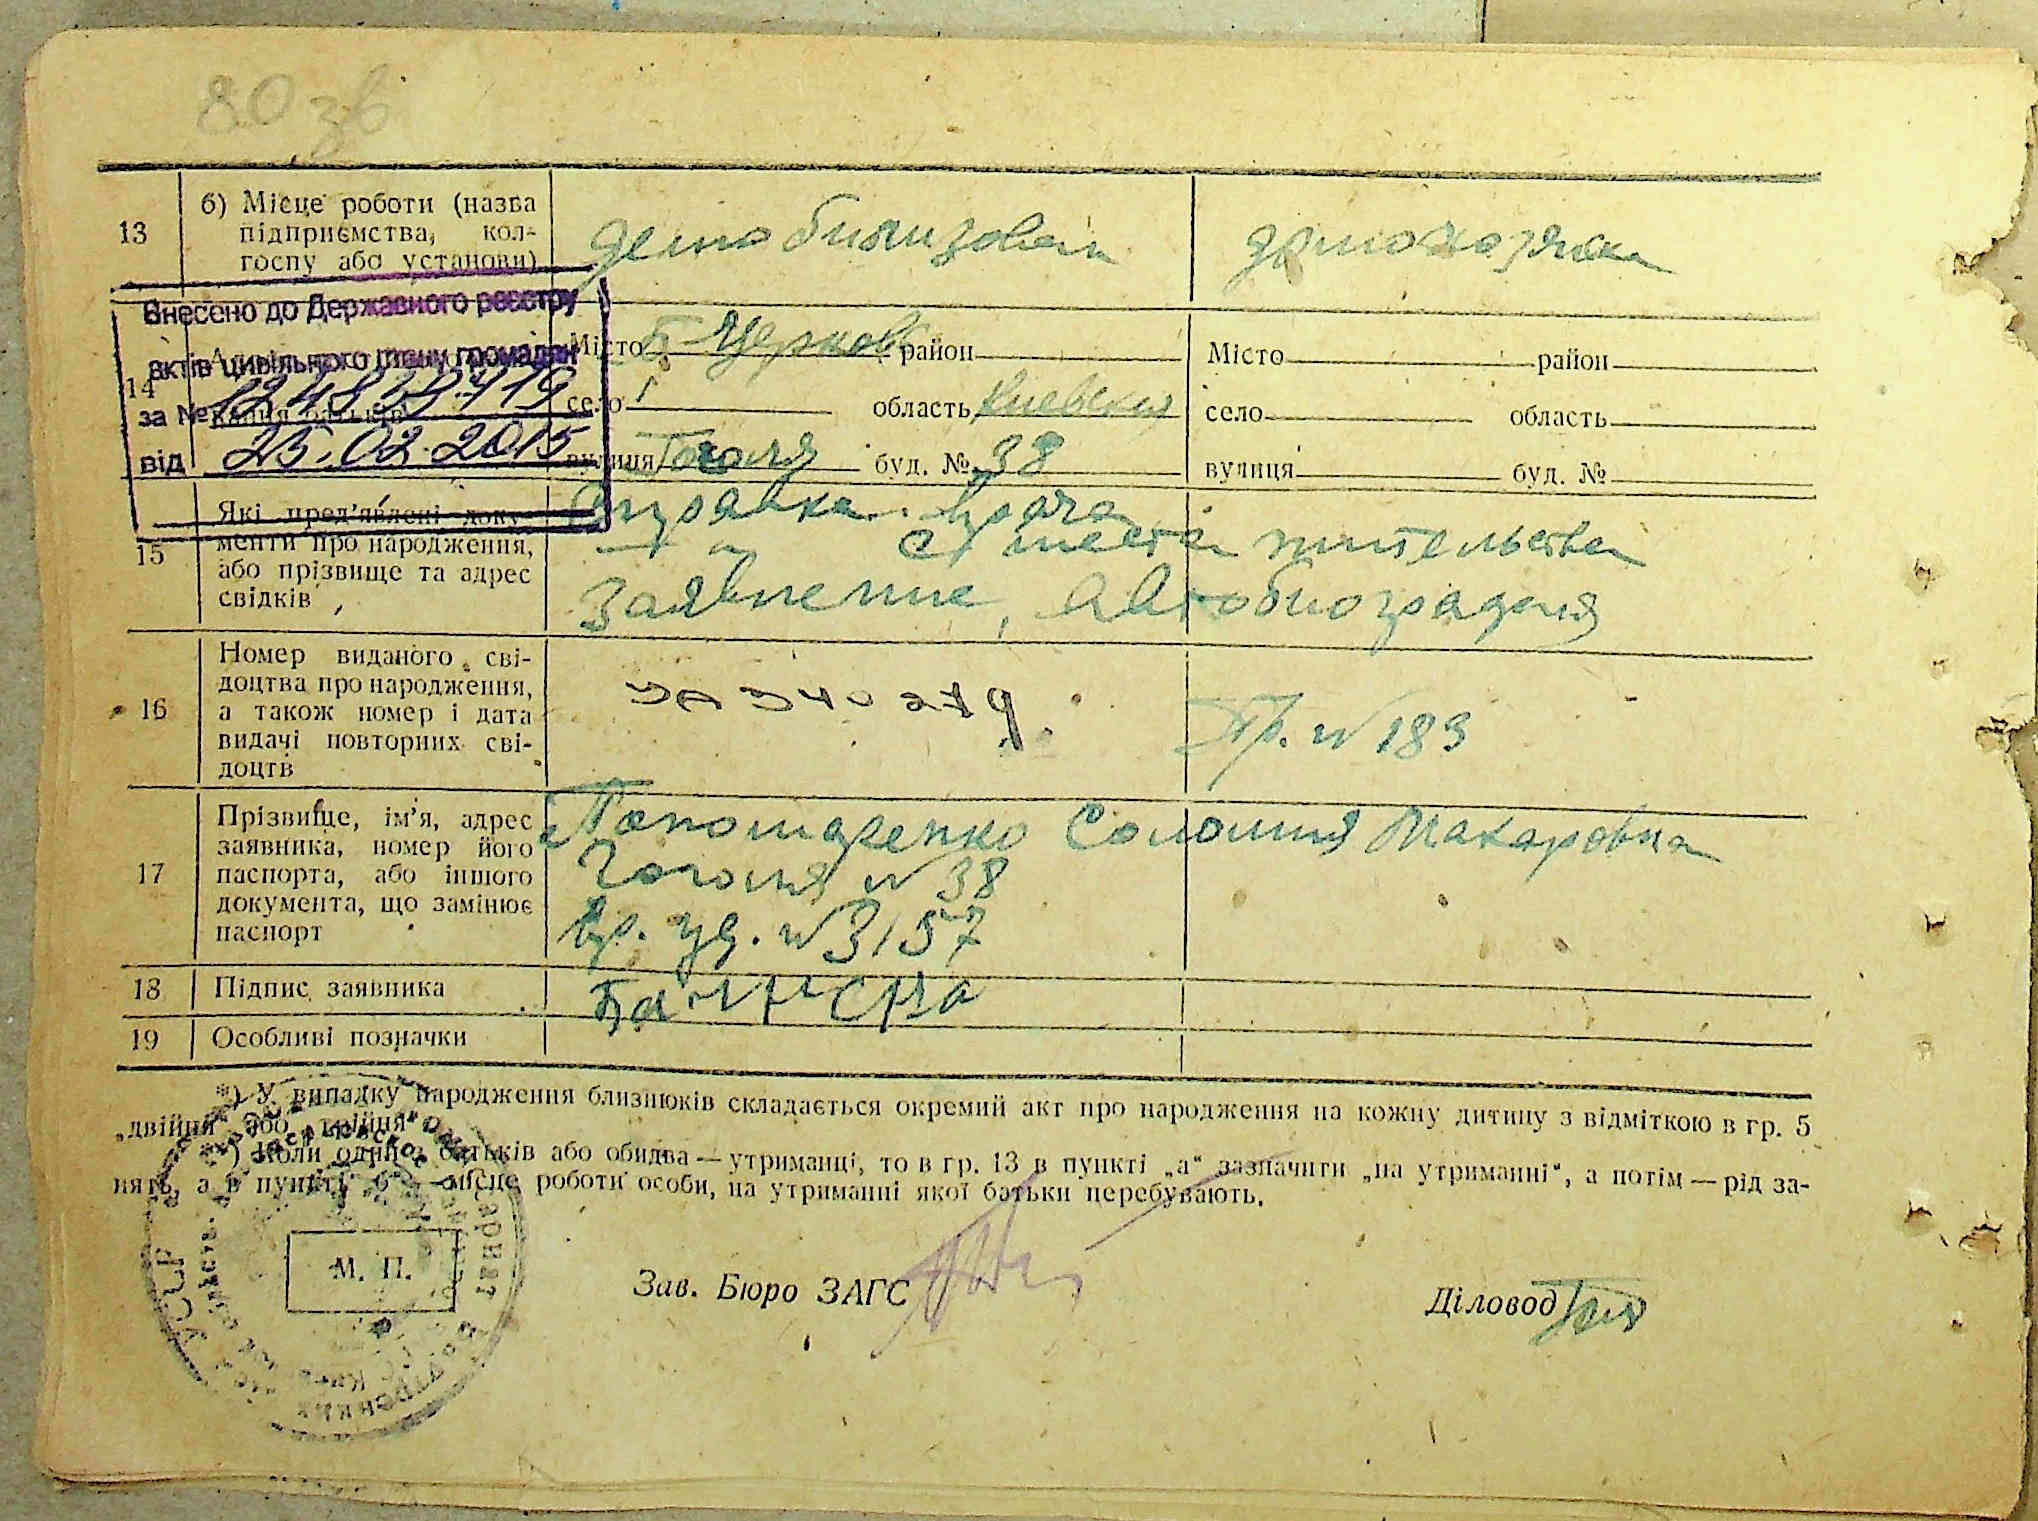 80 зв
13
б) Місце роботи (назва
підприємства, кол-
госпу або установи)
демобилизован
домохозяйка
Внесено до Державного реєстру
актів цивільного стану громадян
за №
від 25.02.2015
14
Місто Б-Церковь район
село область Киевская
вулиця Гоголя буд. № 38
Місто район
село область
вулиця буд. №
15
Які пред'явлені доку-
менти про народження,
або прізвище та адрес
свідків
Справка врача
— " — с места жительства
Заявление, автобиография
16
Номер виданого сві-
доцтва про народження,
а також номер і дата
видачі повторних сві-
доцтв
Пр. № 183
17
Прізвище, ім'я, адрес
заявника, номер його
паспорта, або іншого
документа, що замінює
паспорт
Соломия Макаровна
Гоголя № 38
Вр. уд. № 3157
18
Підпис заявника
19
Особливі позначки
*) У випадку народження близнюків складається окремий акт про народження на кожну дитину з відміткою в гр. 5
„двійня" або „трійня"
) Коли один з батьків або обидва — утриманці, то в гр. 13 в пункті „а" зазначити „на утриманні", а потім — рід за-
нять, а в пункті „б" — місце роботи особи, на утриманні якої батьки перебувають.
УСРР
М. П.
Зав. Бюро ЗАГС
Діловод